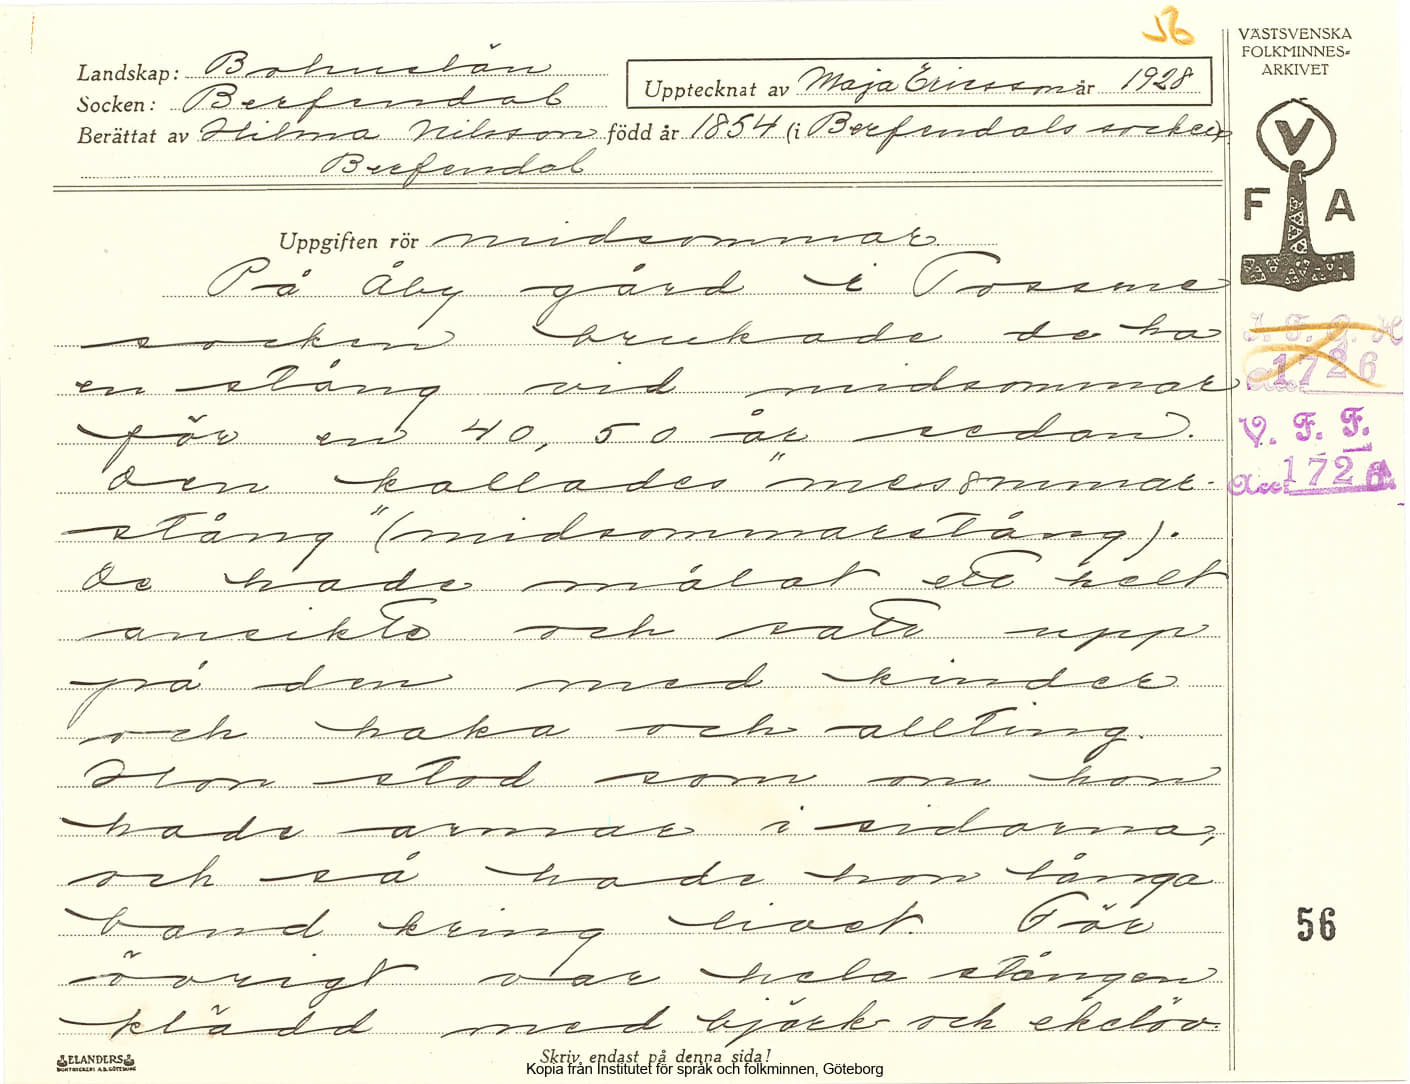 JB
VÄSTSVENSKA
FOLKMINNES-
ARKIVET
V
F A
Landskap: Bohuslän
Socken: Berfendal
Upptecknat av Maja Ericsson år 1928
Berättat av Hilma Nilsson född år 1854 (i Berfendals socken)
Berfendal
Uppgiften rör midsommar
På Åby gård i Tossene
socken brukade de ha
en stång vid midsommar
för en 40, 50 år sedan.
Den kallades "messommar-
stång" (midsommarstång).
De hade målat ett helt
ansikte och satt upp
på den med kinder
och haka och allting.
Hon stod som om hon
hade armar i sidorna,
och så hade hon långa
band kring livet. För
övrigt var hela stången
klädd med björk och ekelöv.
I. F. G. H.
Acc. 1726
V. F. F.
Acc. 1726
56
ELANDERS
BOKTRYCKERI A.B. GÖTEBORG
Skriv endast på denna sida!
Kopia från Institutet för språk och folkminnen, Göteborg